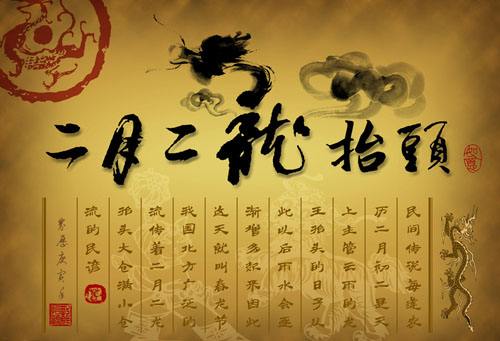 二月二龍抬頭
民间传说每逢农
历二月初二是天
上主管云雨的龙
王抬头的日子从
此以后雨水会逐
渐增多起来因此
这天就叫春龙节
我国北方广泛的
流传着二月二龙
抬头大仓满小仓
流的民谚
庚寅年